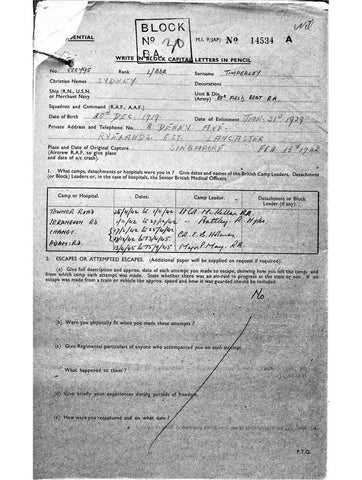 DENTIAL
BLOCK
Nº 20
BA
M.I. 9/JAP/ Nº 14534 A
WRITE IN BLOCK CAPITAL LETTERS IN PENCIL
No. Rank L/BDR Surname TIMPERLEY
Christian Names SYDNEY Decorations
Ship (R.N., U.S.N. or Merchant Navy) Unit & Div. (Army) FIELD REGT RA
Squadron and Command (R.A.F., A.A.F.)
Date of Birth 20th DEC. 1919. Date of Enlistment JAN. 31st 1939
Private Address and Telephone No. 8 DENNY AVE.
RYELANDS EST. LANCASTER
Place and Date of Original Capture SINGAPORE FEB. 15th 1942
(Aircrew R.A.F. to give place and date of a/c crash).
1. What camps, detachments or hospitals were you in? Give dates and names of the British Camp Leaders, Detachment (or Block) Leaders or, in the case of hospitals, the Senior British Medical Officers.
Camp or Hospital. Dates. Camp Leader. Detachment or Block Leader (if any).
CHANGI.
ADAM RD. Major P. May. RA.
2. ESCAPES OR ATTEMPTED ESCAPES. (Additional paper will be supplied on request if required).
(a) Give full description and approx. date of each attempt you made to escape, showing how you left the camp, and from which camp each attempt was made. State whether there was an air-raid in progress at the time or not. If an escape was made from a train or vehicle the approx. speed and how it was guarded should be included.
No
(b) Were you physically fit when you made these attempts?
(c) Give Regimental particulars of anyone who accompanied you on each attempt.
What happened to them?
(d) Give briefly your experiences during periods of freedom.
(e) How were you recaptured and on what date?
P.T.O.